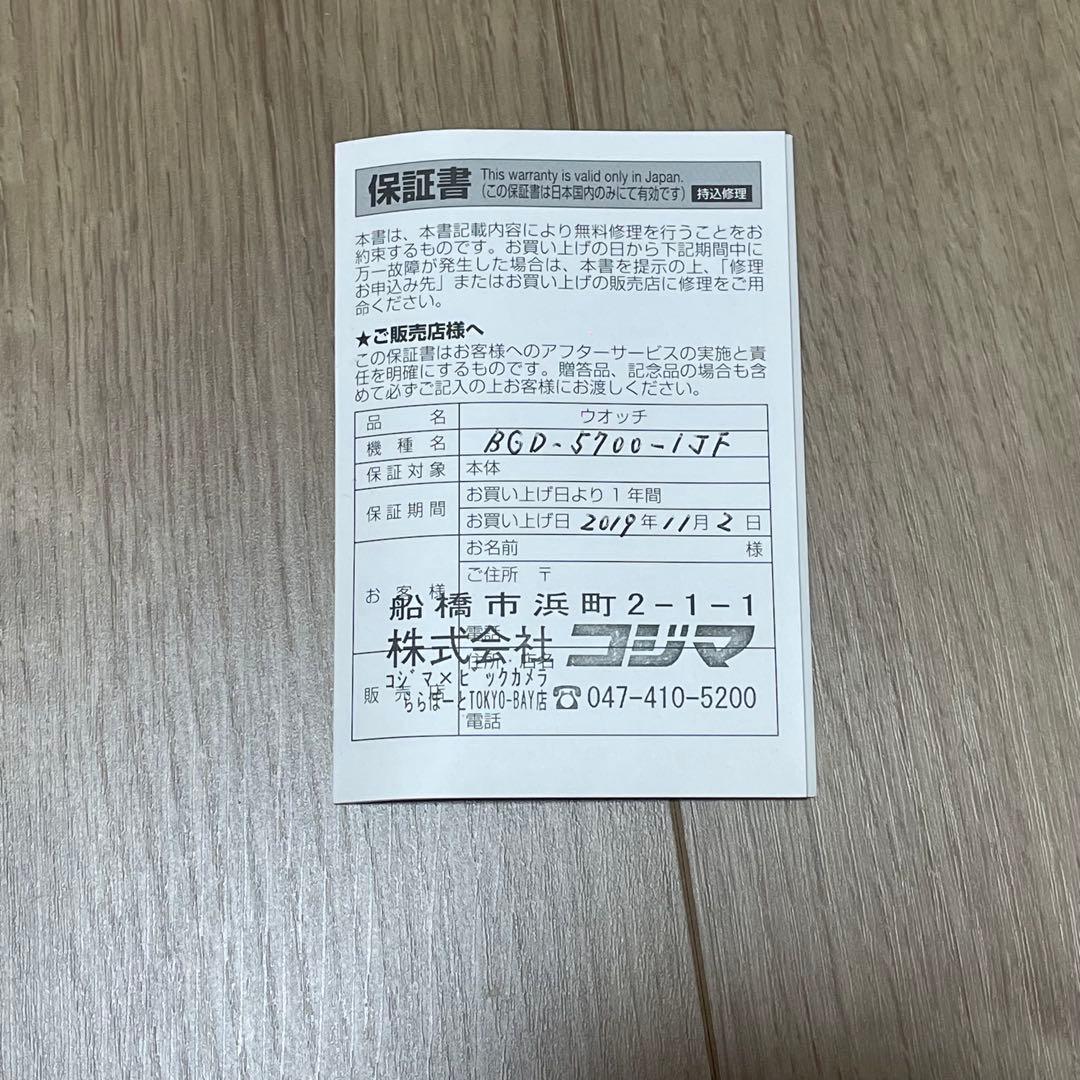 保証書 This warranty is valid only in Japan.
(この保証書は日本国内のみにて有効です) 持込修理
本書は、本書記載内容により無料修理を行うことをお
約束するものです。お買い上げの日から下記期間中に
万一故障が発生した場合は、本書を提示の上、「修理
お申込み先」またはお買い上げの販売店に修理をご用
命ください。
★ご販売店様へ
この保証書はお客様へのアフターサービスの実施と責
任を明確にするものです。贈答品、記念品の場合も含
めて必ずご記入の上お客様にお渡しください。
品名 ウオッチ
機種名 BGD-5700-1JF
保証対象 本体
保証期間 お買い上げ日より1年間
お買い上げ日 2019年11月2日
お名前 様
ご住所 〒
お客様
船橋市浜町2-1-1
電話
株式会社 コジマ
住所・店名
コジマ×ビックカメラ
販売店
ららぽーとTOKYO-BAY店 ☎ 047-410-5200
電話